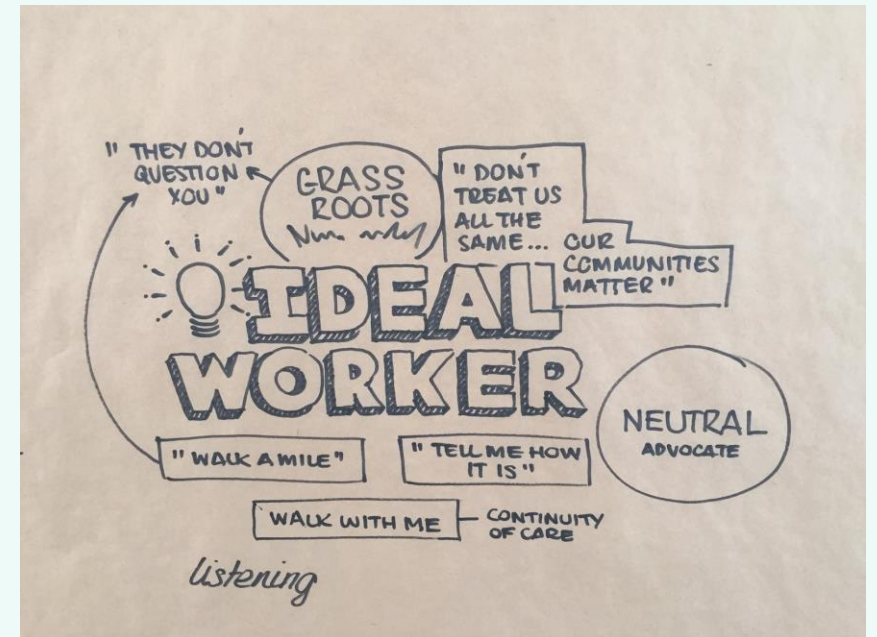 " THEY DON'T
QUESTION
YOU "
GRASS
ROOTS
" DON'T
TREAT US
ALL THE
SAME... OUR
COMMUNITIES
MATTER "
IDEAL
WORKER
NEUTRAL
ADVOCATE
" WALK A MILE "
" TELL ME HOW
IT IS "
WALK WITH ME
CONTINUITY
OF CARE
listening